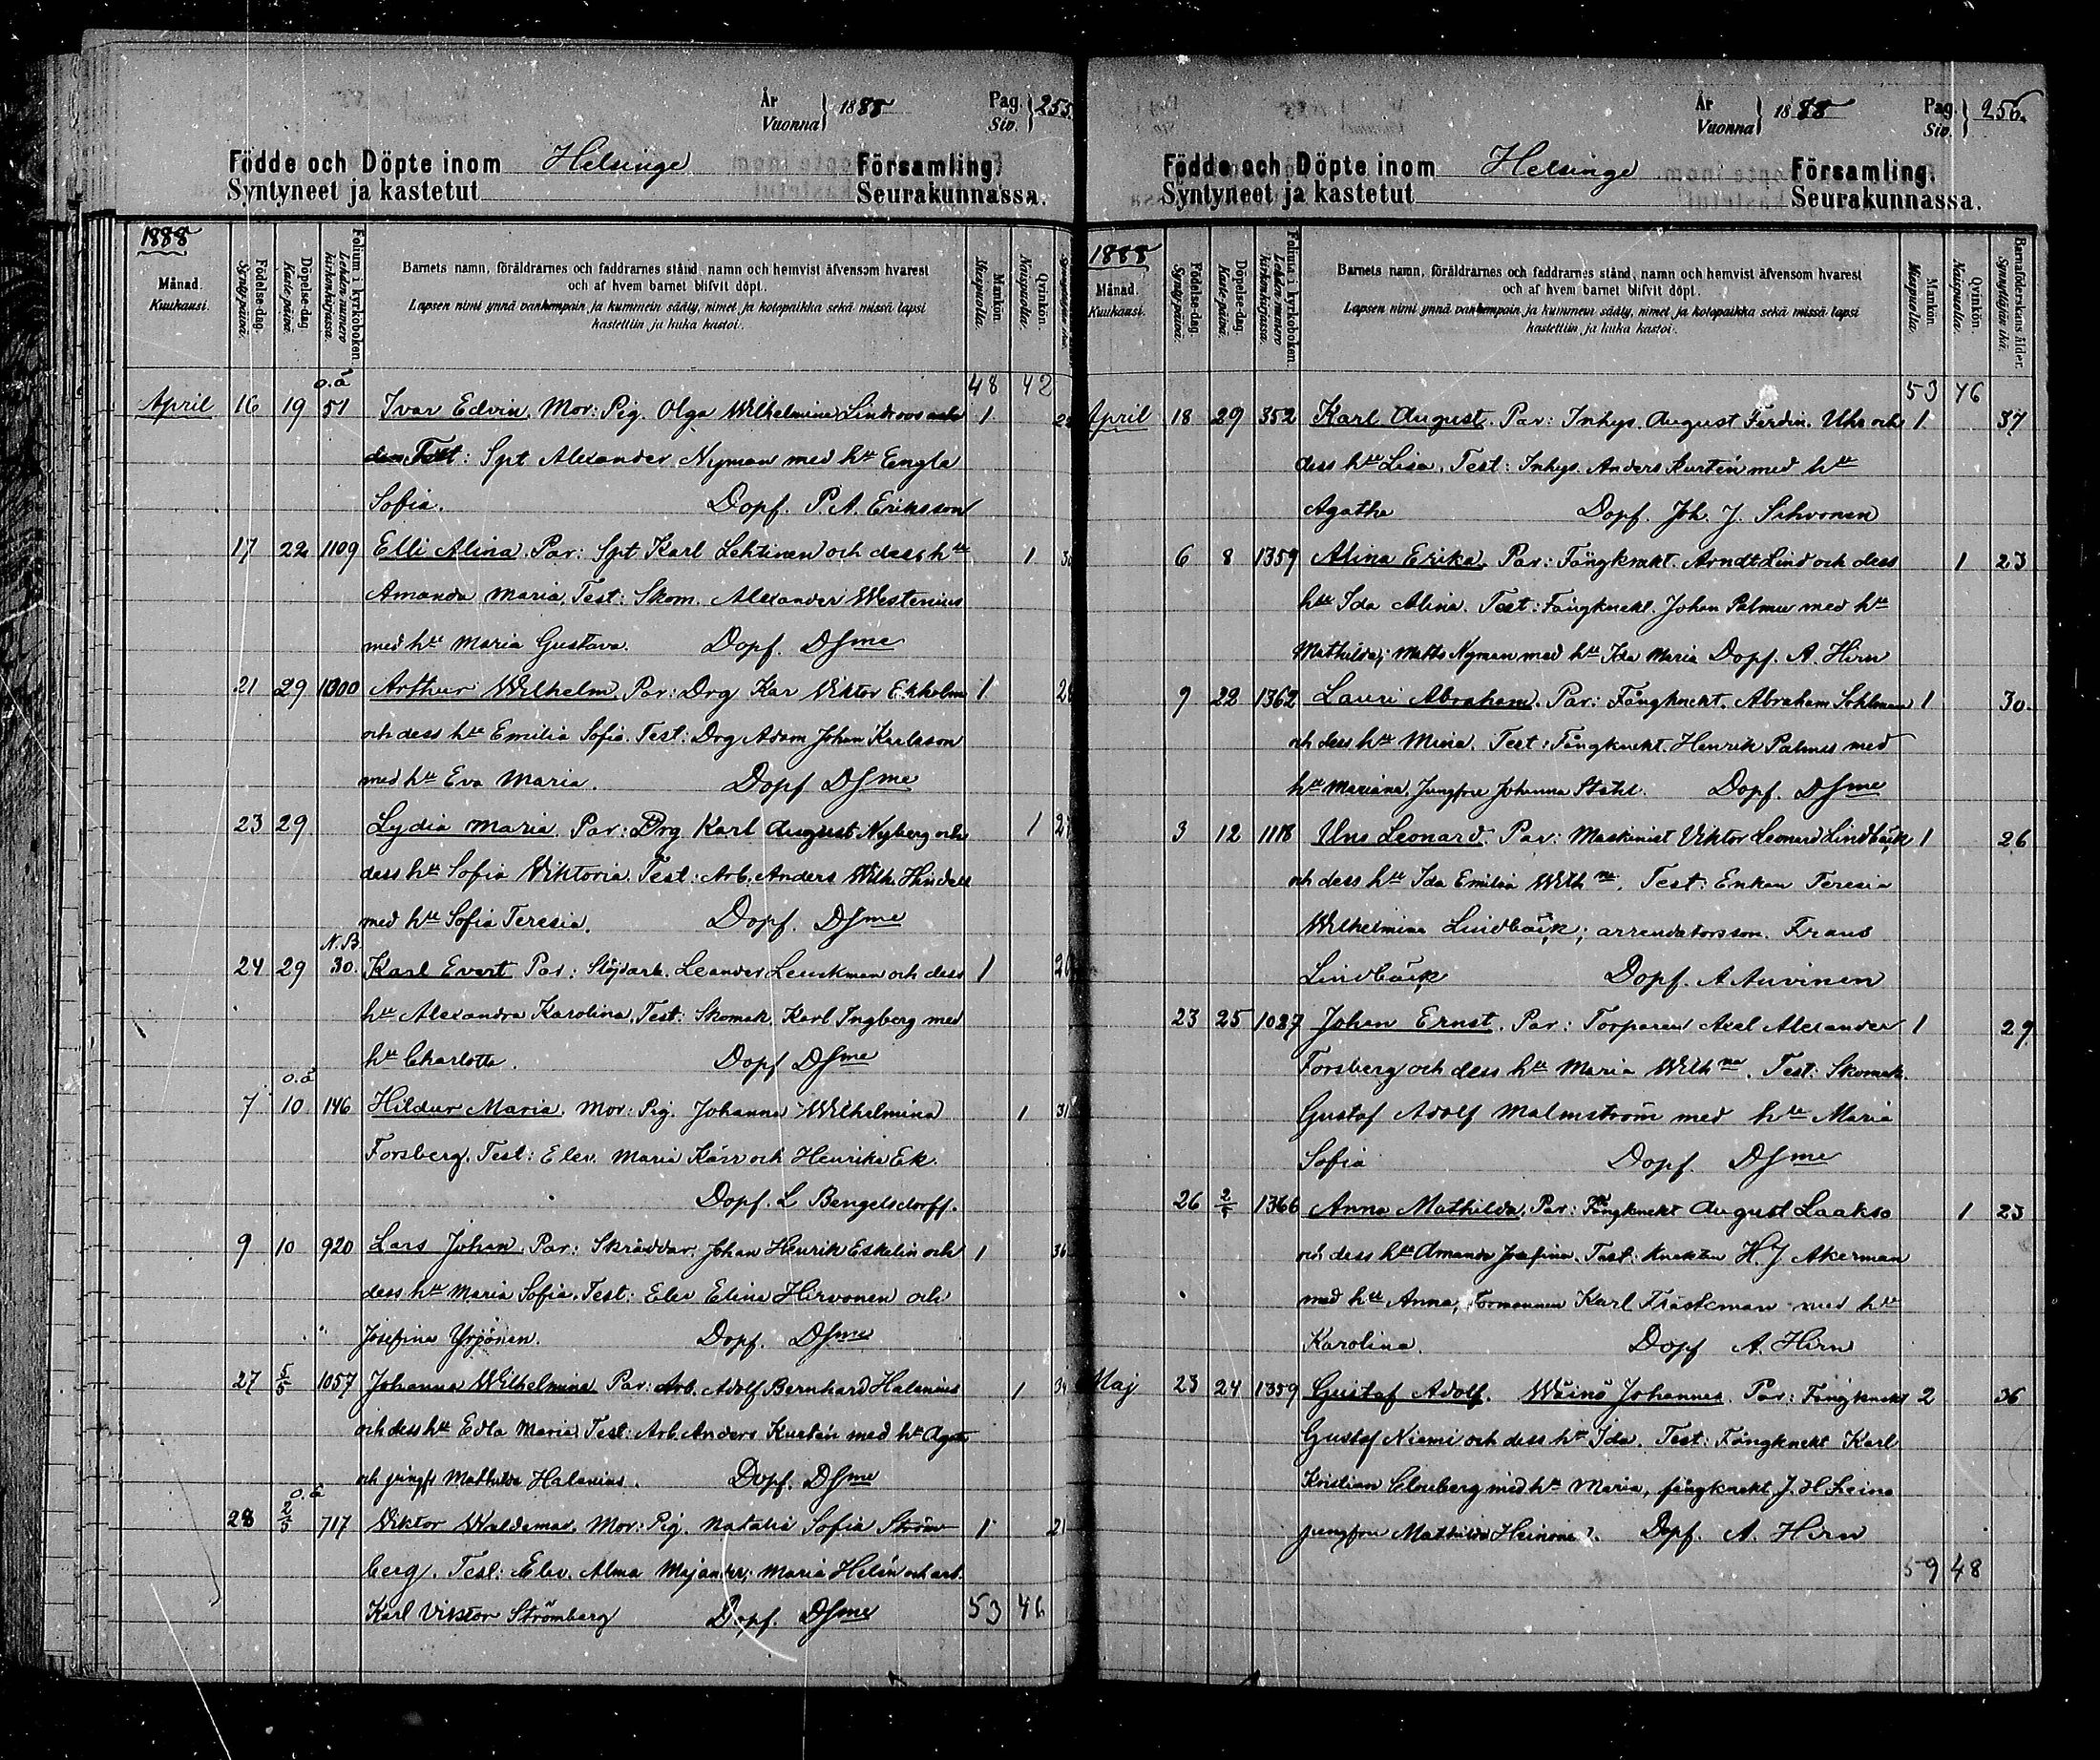 År Vuonna } 1888 Pag. Siv. } 255.
Födde och Döpte inom Helsinge Församling.
Syntyneet ja kastetut Seurakunnassa.
1888
Månad. Kuukausi.
Födelse-dag. Syntypäivä.
Döpelse-dag. Kastepäivä.
Folium i kyrkoboken. Lehden numero kirkonkirjassa.
Barnets namn, föräldrarnes och faddrarnes stånd, namn och hemvist äfvensom hvarest
och af hvem barnet blifvit döpt.
Lapsen nimi ynnä vanhempain ja kummein sääty, nimet ja kotopaikka sekä missä lapsi
kastettiin ja kuka kastoi.
Mankön. Miespuolia.
Qvinkön. Naispuolia.
o.ä 48 42
April 16 19 51 Ivar Edvin, Mor: Pig. Olga Wilhelmina Lindroos 1
Test: Spt Alexander Nyman med hu Engla
Sofia. Dopf. P. A. Eriksson
17 22 1109 Elli Alina. Par: Spt Karl Lehtinen och dess hu 1
Amanda Maria. Test: Skom. Alexander Westenius
med hu Maria Gustava. Dopf. DSme
21 29 1300 Arthur Wilhelm. Par: Drg Kar Viktor Ekholm 1
och dess hu Emilia Sofia. Test: Drg Adam Johan Karlsson
med hu Eva Maria. Dopf DSme
23 29 Lydia Maria. Par: Drg Karl August Nyberg och 1
dess hu Sofia Viktoria. Test: Arb. Anders Wilh.
med hu Sofia Teresia. Dopf. DSme
N.B.
24 29 30. Karl Evert Par: Slöjdarb. Leander Lenkman och dess 1
hu Alexandra Karolina. Test: Skomak. Karl Ingberg med
hu Charlotta. Dopf DSme
o.ä
7 10 146 Hildur Maria. Mor: Pig. Johanna Wilhelmina 1 31
Forsberg. Test: Elev. Maria Kärr och Henrika Ek.
Dopf. L Bengelsdorff.
9 10 920 Lars Johan. Par: Skräddar. Johan Henrik Eskelin och 1 36
dess hu Maria Sofia. Test: Elev Elina Hirvonen och
Josefina Yrjönen. Dopf. DSme
27 5/5 1057 Johanna Wilhelmina Par: Arb. Adolf Bernhard Halenius 1 34
och dess hu Edla Maria. Test: Arb. Anders Kurtén med hu Agata
och jungfr Mathilda Halenius. Dopf. DSme
o.ä
28 2/5 717 Viktor Waldemar. Mor: Pig. Natalia Sofia Ström 1 21
berg. Test: Elev. Alma Majander; Maria Helén och arb.
Karl Viktor Strömberg Dopf. DSme 53 46
År Vuonna } 1888 Pag. Siv. } 256.
Födde och Döpte inom Helsinge Församling.
Syntyneet ja kastetut Seurakunnassa.
1888
Månad. Kuukausi.
Födelse-dag. Syntypäivä.
Döpelse-dag. Kastepäivä.
Folium i kyrkoboken. Lehden numero kirkonkirjassa.
Barnets namn, föräldrarnes och faddrarnes stånd, namn och hemvist äfvensom hvarest
och af hvem barnet blifvit döpt.
Lapsen nimi ynnä vanhempain ja kummein sääty, nimet ja kotopaikka sekä missä lapsi
kastettiin ja kuka kastoi.
Mankön. Miespuolia.
Qvinkön. Naispuolia.
Barnaföderskans ålder. Synnyttäjän ikä.
53 46
April 18 29 352 Karl August. Par: Inhys. August Ferdin. Uhr och 1 37
dess hu Lisa. Test: Inhys. Anders Kurtén med hu
Agatha Dopf. Joh. J. Sihvonen
6 8 1359 Alina Erika. Par: Fångknekt. Arndt Lind och dess 1 23
hu Ida Alina. Test: Fångknekt. Johan Palmu med hu
Mathilda; Matts Nyman med hu Ida Maria Dopf. A. Hirn
9 22 1362 Lauri Abraham. Par: Fångknekt. Abraham Sohlman 1 30
och dess hu Mina. Test: Fångknekt. Henrik Palmus med
hu Mariana. Jungfru Johanna Stahl. Dopf. DSme
3 12 1118 Uno Leonard. Par: Maskinist Viktor Leonard Lindbäck 1 26
och dess hu Ida Emilia Wilhna. Test: Enkan Teresia
Wilhelmina Lindbäck; arrendatorsson. Frans
Lindbäck Dopf. A Auvinen
23 25 1027 Johan Ernst. Par: Torparen Axel Alexander 1 29
Forsberg och dess hu Maria Wilhna. Test: Skomak.
Gustaf Adolf Malmström med hu Maria
Sofia Dopf. DSme
26 2/5 1366 Anna Mathilda. Par: Fångknekt August Laakso 1 23
och dess hu Amanda Josefina. Test: Knekten H. J Akerman
med hu Anna; Formannen Karl Fräskman med hu
Karolina. Dopf A. Hirn
Maj 23 24 1359 Gustaf Adolf. Wäinö Johannes. Par: Fångknekt 2 36
Gustaf Niemi och dess hu Ida. Test: Fångknekt Karl
Kristian Elouberg med hu Maria, fångknekt J. H Leino
jungfru Mathilda Heinonen. Dopf. A. Hirn
59 48